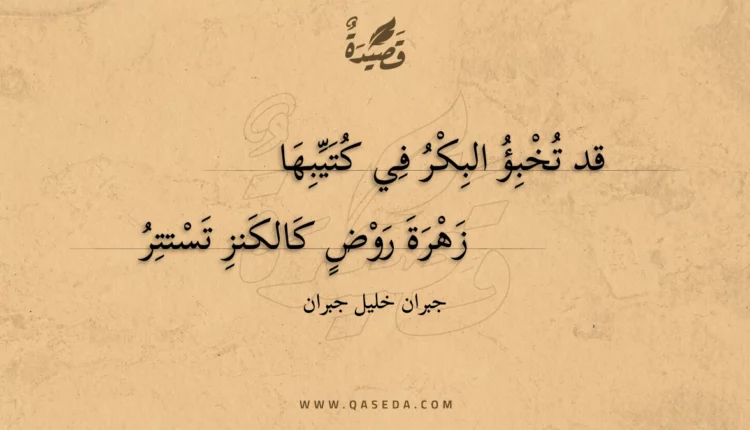 قَصِيْدَةٌ
قد تُخْبِؤُ البِكْرُ فِي كُتَيِّبِهَا
زَهْرَةَ رَوْضٍ كَالكَنزِ تَسْتتِرُ
جبران خليل جبران
WWW.QASEDA.COM